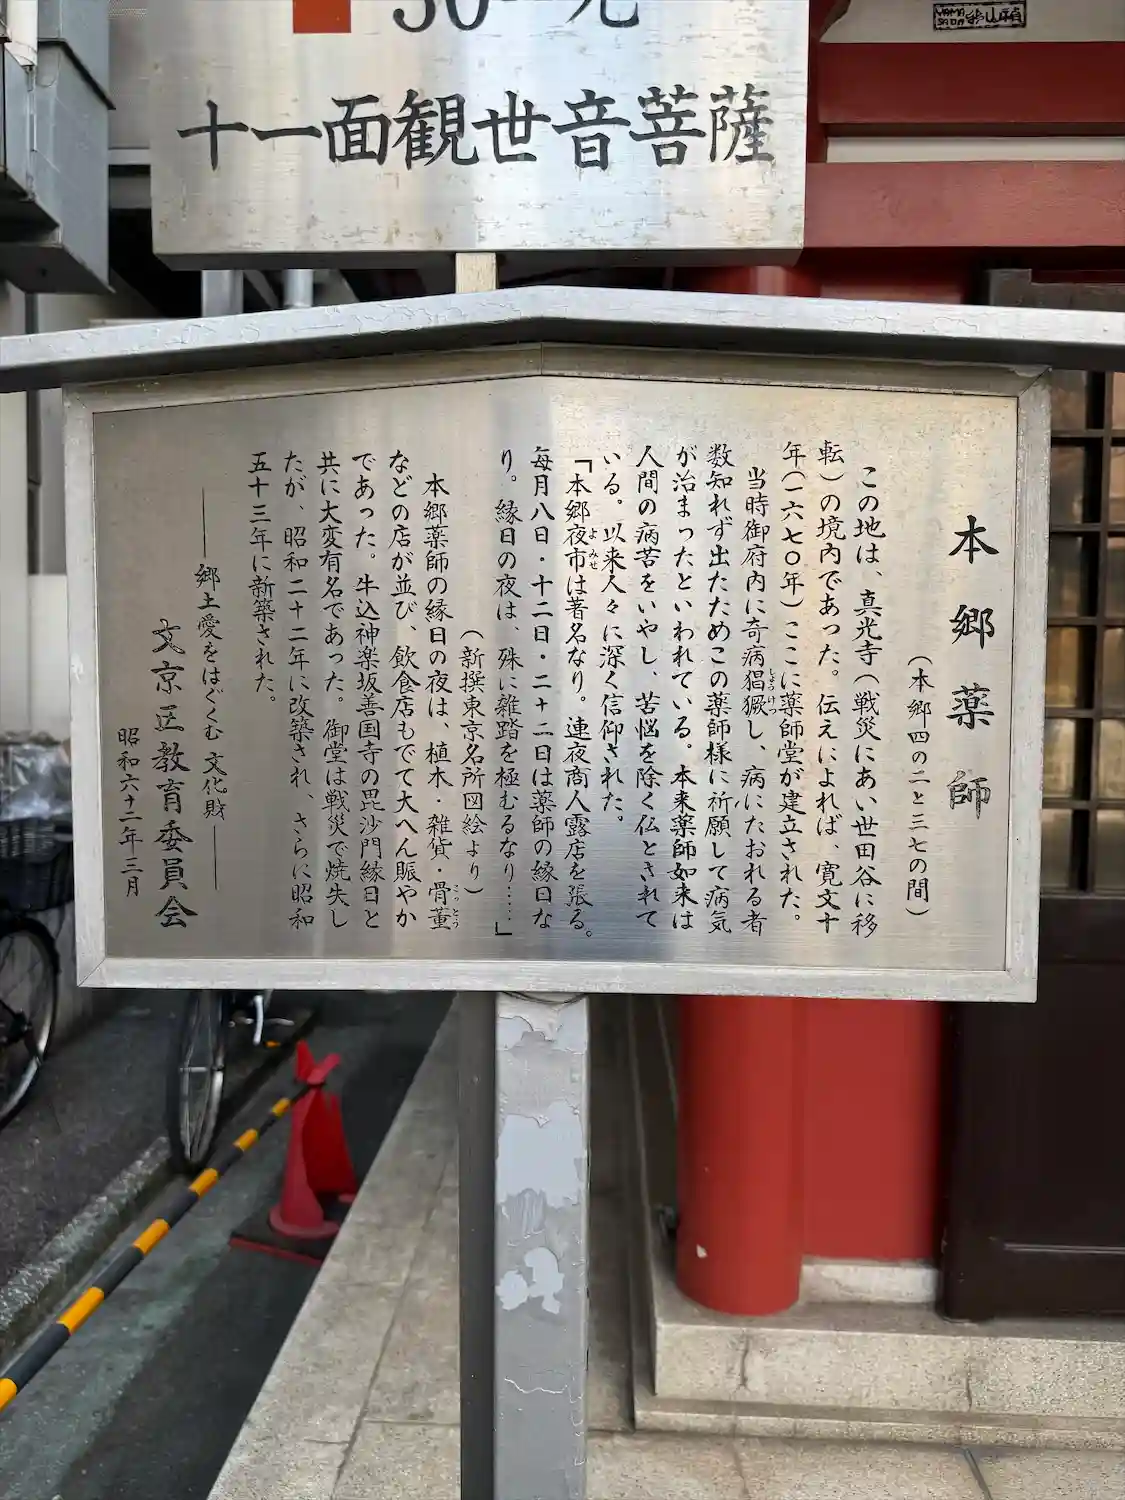 十一面観世音菩薩
本郷薬師
(本郷四の二と三七の間)
この地は、真光寺(戦災にあい世田谷に移
転)の境内であった。伝えによれば、寛文十
年(一六七〇年)ここに薬師堂が建立された。
当時御府内に奇病猖獗し、病にたおれる者
しょうけつ
数知れず出たためこの薬師様に祈願して病気
が治まったといわれている。本来薬師如来は
人間の病苦をいやし、苦悩を除く仏とされて
いる。以来人々に深く信仰された。
「本郷夜市は著名なり。連夜商人露店を張る。
よみせ
毎月八日・十二日・二十二日は薬師の縁日な
り。縁日の夜は、殊に雑踏を極むるなり……」
(新撰東京名所図絵より)
本郷薬師の縁日の夜は、植木・雑貨・骨董
こっとう
などの店が並び、飲食店もでて大へん賑やか
であった。牛込神楽坂善国寺の毘沙門縁日と
共に大変有名であった。御堂は戦災で焼失し
たが、昭和二十二年に改築され、さらに昭和
五十三年に新築された。
郷土愛をはぐくむ 文化財
文京区教育委員会
昭和六十二年三月